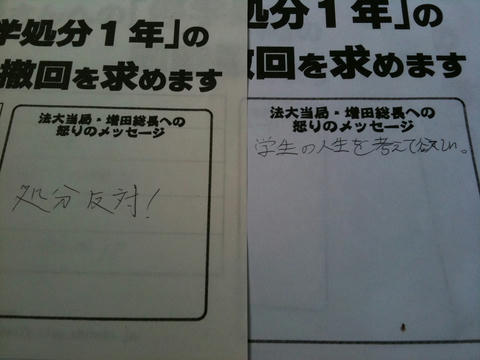 学処分1年」の
撤回を求めます
法大当局・増田総長への
怒りのメッセージ
処分反対!
処分1年」の
撤回を求めます
法大当局・増田総長への
怒りのメッセージ
学生の人生を考えて欲しい。